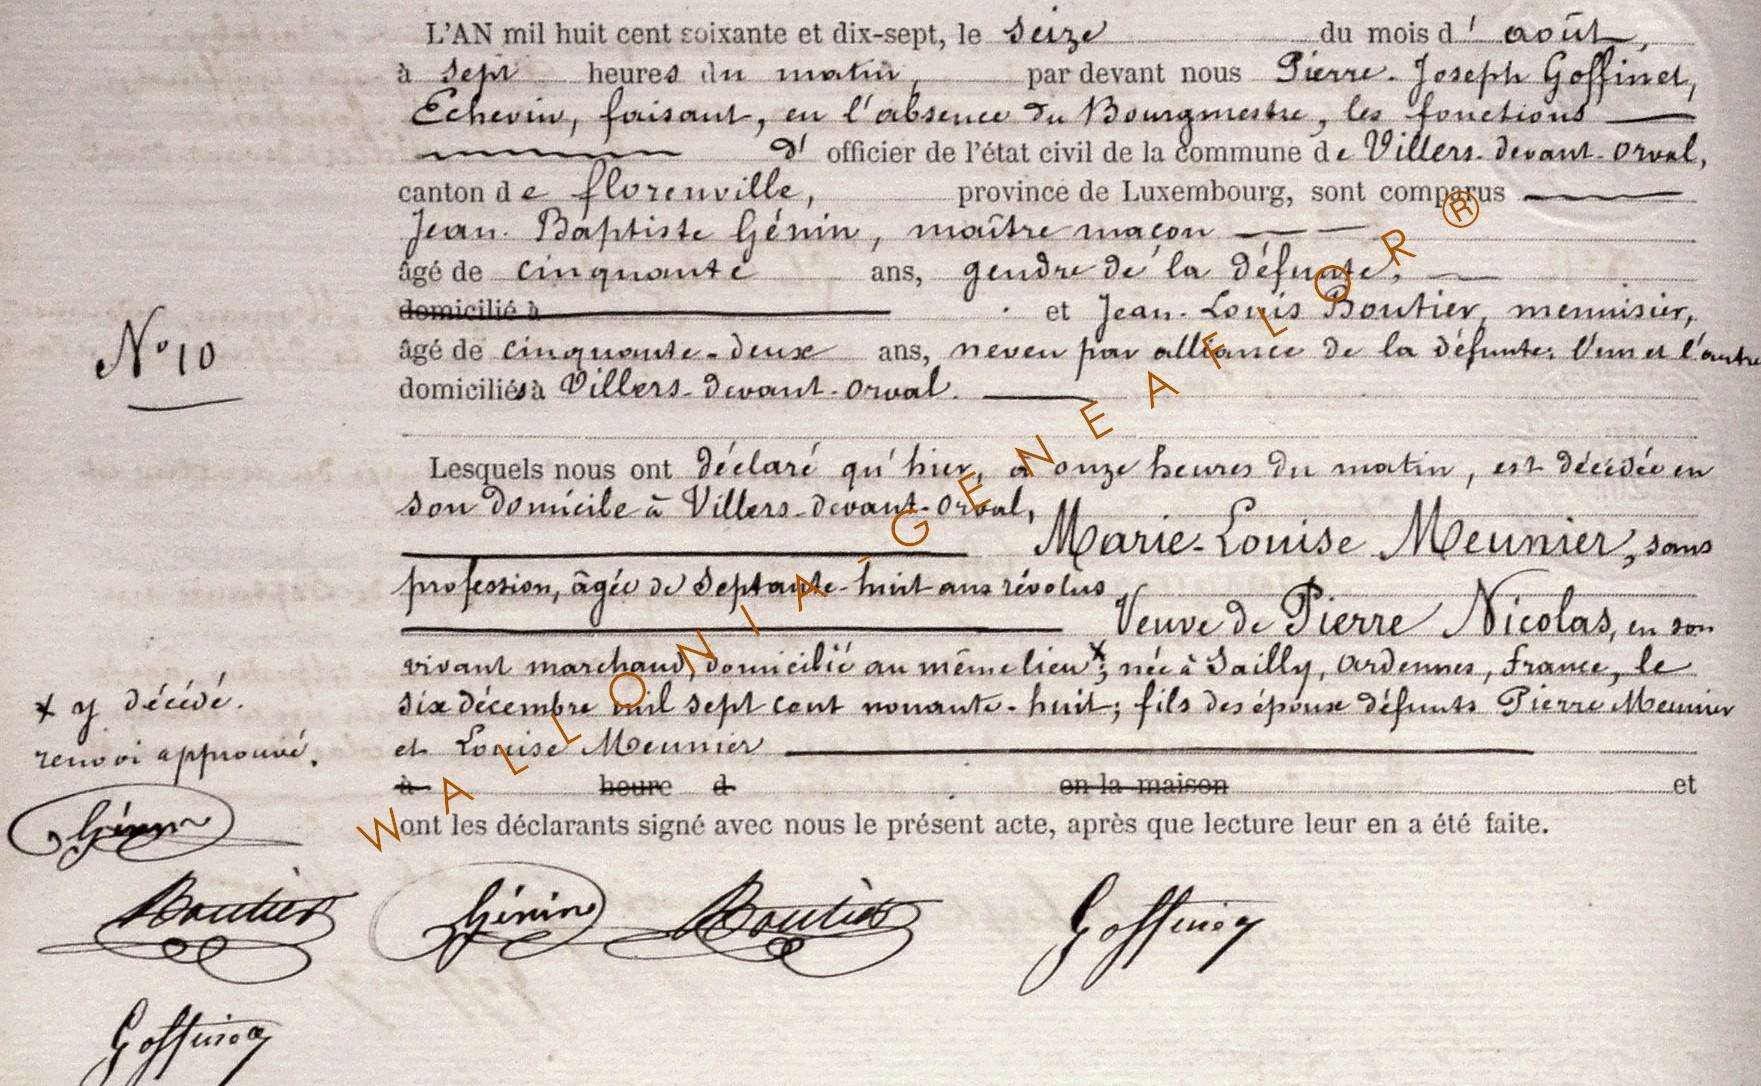 L'AN mil huit cent soixante et dix-sept, le seize du mois d'août,
à sept heures du matin, par devant nous Pierre-Joseph Goffinet,
Echevin, faisant, en l'absence du Bourgmestre, les fonctions
d'officier de l'état civil de la commune de Villers-devant-Orval,
canton de florenville, province de Luxembourg, sont comparus
Jean-Baptiste Génin, maître maçon
âgé de cinquante ans, gendre de la défunte,
domicilié à et Jean-Louis Boutier, menuisier,
N° 10
âgé de cinquante-deux ans, neveu par alliance de la défunte; l'un et l'autre
domiciliés à Villers-devant-Orval.
Lesquels nous ont déclaré qu'hier, à onze heures du matin, est décédée en
son domicile à Villers-devant-Orval,
Marie-Louise Meunier, sans
profession, âgée de septante-huit ans révolus
Veuve de Pierre Nicolas, en son
vivant marchand, domicilié au même lieu x; née à Sailly, Ardennes, france, le
six décembre mil sept cent nonante-huit; fils des époux défunts Pierre Meunier
x y décédé.
renvoi approuvé.
et Louise Meunier
à heure d en la maison et
ont les déclarants signé avec nous le présent acte, après que lecture leur en a été faite.
Génin
Boutier Génin Boutier Goffinet
Goffinet
WALLONIA-GENEAFLOR®